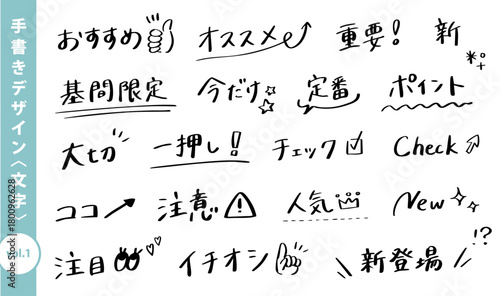 手書きデザイン〈文字〉
vol.1
おすすめ オススメ 重要! 新
基間限定 今だけ 定番 ポイント
大切 一押し! チェック Check
ココ 注意 人気 New
注目 イチオシ 新登場 !?
Adobe Stock | #1800962628